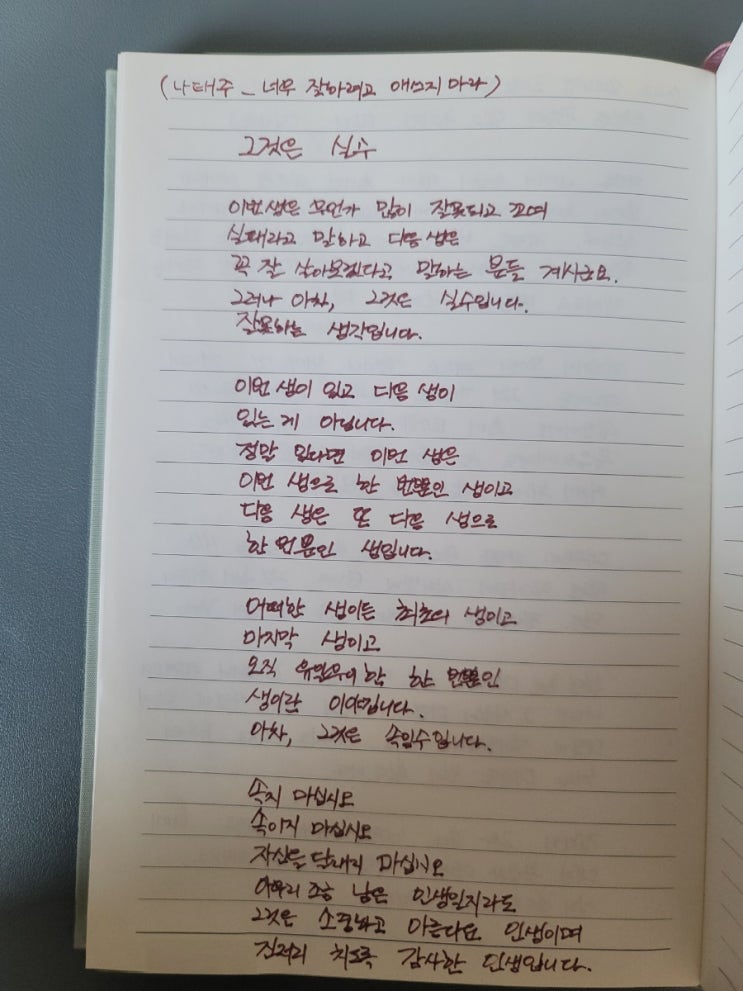 (나태주 - 너무 잘하려고 애쓰지 마라)
그것은 실수
이번 생은 무언가 많이 잘못되고 꼬여
실패라고 말하고 다음 생은
꼭 잘 살아보겠다고 말하는 분들 계시군요.
그러나 아차, 그것은 실수입니다.
잘못하는 생각입니다.
이번 생이 있고 다음 생이
있는 게 아닙니다.
정말 있다면 이번 생은
이번 생으로 한 번뿐인 생이고
다음 생은 또 다음 생으로
한 번뿐인 생입니다.
어떠한 생이든 최초의 생이고
마지막 생이고
오직 유일무이한 한 번뿐인
생이란 이야깁니다.
아차, 그것은 속임수입니다.
속지 마십시오
속이지 마십시오
자신을 달래지 마십시오
아무리 조금 남은 인생일지라도
그것은 소중하고 아름다운 인생이며
진저리 치도록 감사한 인생입니다.